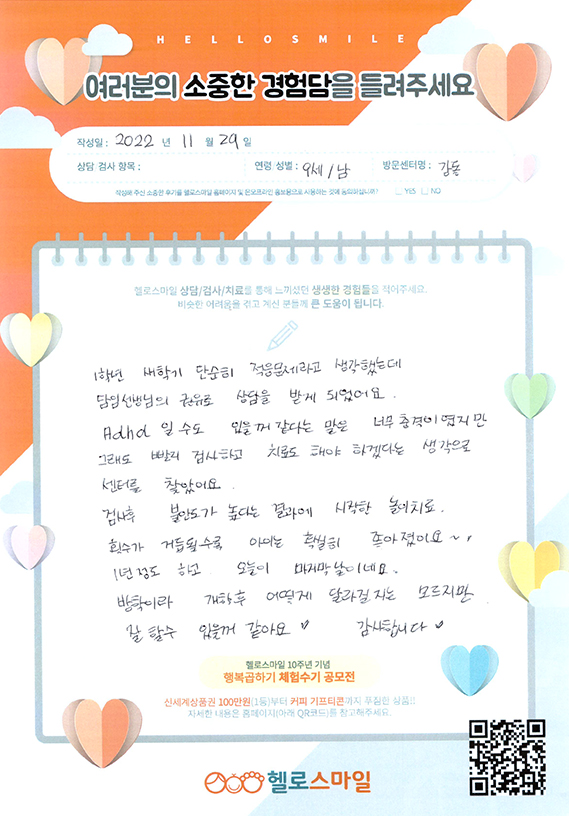 HELLOSMILE
여러분의 소중한 경험담을 들려주세요
작성일 : 2022 년 11 월 29 일
상담 검사 항목 : 연령 성별 : 9세/남 방문센터명 : 강동
작성해 주신 소중한 후기를 헬로스마일 홈페이지 및 온오프라인 홍보용으로 사용하는 것에 동의하십니까? YES NO
헬로스마일 상담/검사/치료를 통해 느끼셨던 생생한 경험들을 적어주세요.
비슷한 어려움을 겪고 계신 분들께 큰 도움이 됩니다.
1학년 새학기 단순히 적응문제라고 생각했는데
담임선생님의 권유로 상담을 받게 되었어요.
Adhd 일 수도 있을꺼 같다는 말은 너무 충격이였지만
그래도 빨리 검사하고 치료도 해야 하겠다는 생각으로
센터를 찾았어요.
검사후 불안도가 높다는 결과에 시작한 놀이치료.
회수가 거듭될수록 아이는 확실히 좋아졌어요~
1년정도 하고 오늘이 마지막날이네요.
방학이라 개학후 어떻게 달라질지는 모르지만
잘 할수 있을꺼 같아요♡ 감사합니다♡
헬로스마일 10주년 기념
행복곱하기 체험수기 공모전
신세계상품권 100만원(1등)부터 커피 기프티콘까지 푸짐한 상품!!
자세한 내용은 홈페이지(아래 QR코드)를 참고해주세요.
헬로스마일